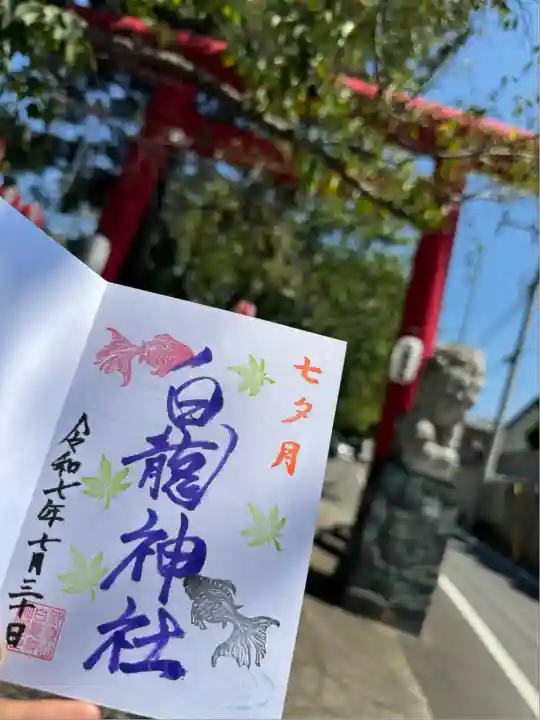 七夕月
白龍神社
令和七年七月三十日